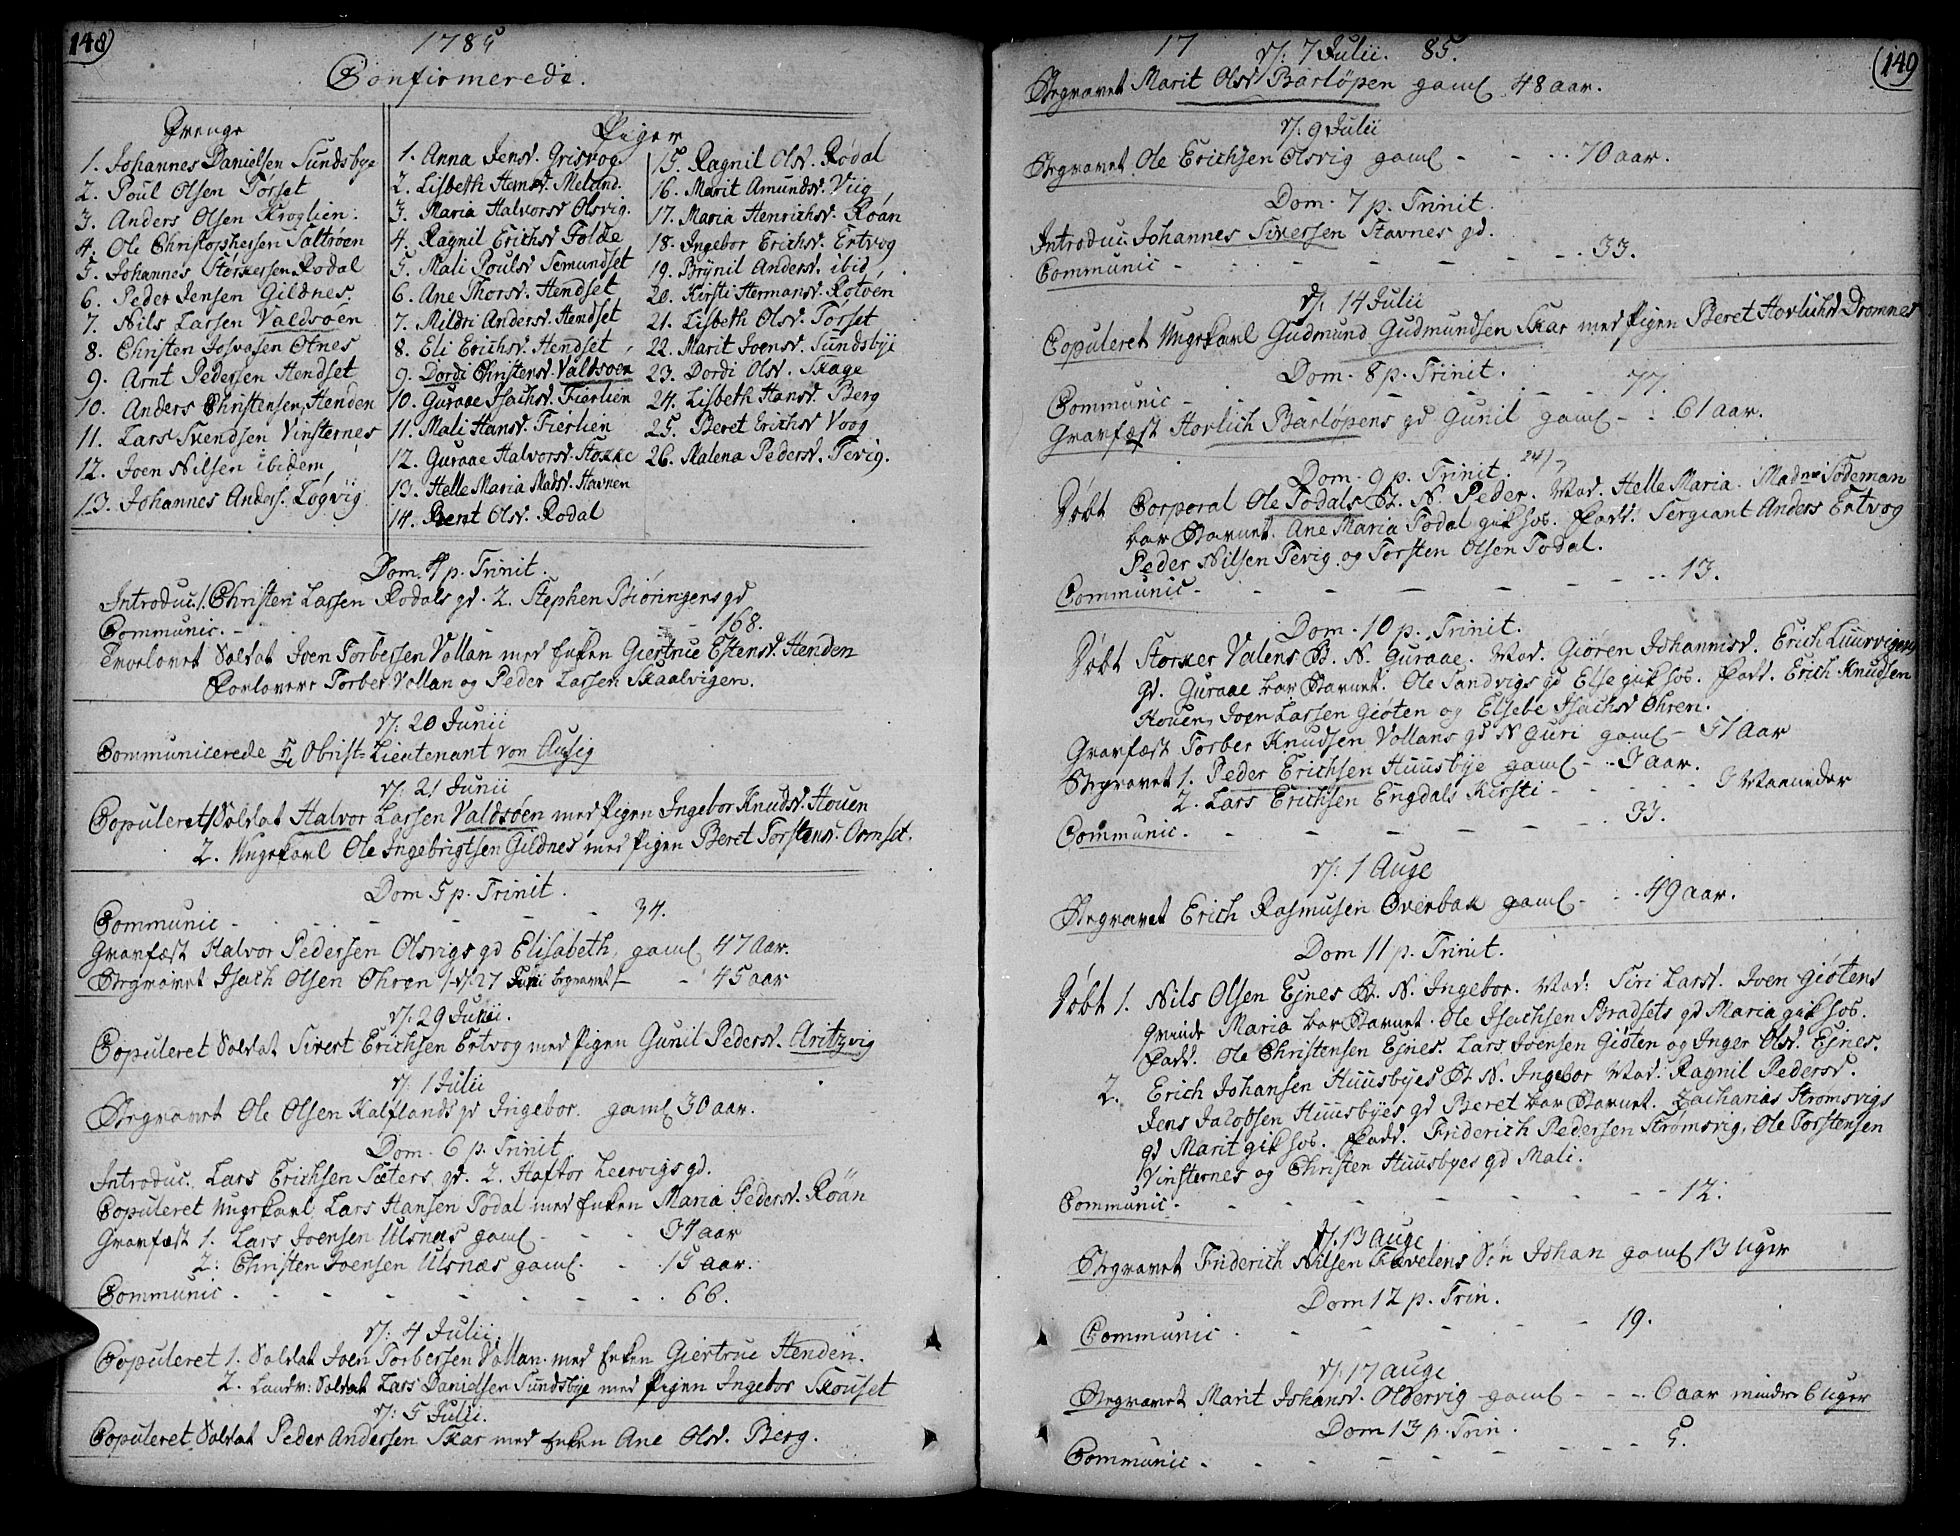 148)
1785
Confirmerede.
Drenge
1. Johannes Danielsen Sundsbye
2. Poul Olsen Torset
3. Anders Olsen Kroglien.
4. Ole Christophersen Saltrøen
5. Johannes Størkersen Rodal
6. Peder Jensen Gildnes.
7. Nils Larsen Valdsøen
8. Christen Josvasen Otnes
9. Arnt Pedersen Hendset
10. Anders Christensen Henden
11. Lars Svendsen Vinsternes
12. Joen Nilsen ibidem
13. Johannes Anders. Løgvig
Piger
1. Anna Jensd. Grisvog
2. Lisbeth Hemsd. Meland.
3. Maria Halvorsd Olsvig.
4. Ragnil Erichsd Folde
5. Mali Poulsd Semundset
6. Ane Thorsd. Hendset
7. Mildri Andersd. Hendset
8. Eli Erichsd. Hendset
9. Dordi Christensd. Valdsøen
10. Guraae Isachsd. Fierlien
11. Mali Hansd. Fierlien
12. Guraae Halvorsd. Stokke
13. Helle Maria Madsd. Havnen
14. Berit Olsd. Rodal
15. Ragnil Olsd. Rodal
16. Marit Amundsd. Viig
17. Maria Henrichsd. Roån
18. Ingebor Erichsd. Ertvog
19. Brynil Andersd. ibid
20. Kirsti Hermansd. Rotvén
21. Lisbeth Olsd. Torset
22. Marit Joensd. Sundsbye
23. Dordi Olsd. Skage
24. Lisbeth Hansd. Berg
25. Beret Erichsd Voog
26. Malena Pedersd. Tevig.
Dom. 4 p. Trinit.
Introduc. 1. Christen Larsen Rodals gd. 2. Stephen Biøringens gd
Communic. - - - 168.
Trolovet Soldat Joen Torbersen Vollan med Enken Giertrue Estensd. Henden
Forlovere Torber Vollan og Peder Larsen Skaalvigen.
d: 20 Junii
Communicerede Hr Obrist-Lieutenant von Ausig
d: 21 Junii
Copuleret 1 Soldat Halvor Larsen Valdsøen med Pigen Ingebor Knudsd. Houen
2. Ungekarl Ole Ingebrigtsen Gildnes med Pigen Beret Torstensd. Ormset.
Dom 5 p. Trinit.
Communic - - - 34.
Gravfæst Halvor Pedersen Olsvigs gd Elisabeth, gaml 47 Aar.
Begravet Isach Olsen Ohren /d. 27 Juni begravet/ - - 45 aar
d: 29 Junii.
Copuleret Soldat Sivert Erichsen Ertvog med Pigen Gunil Pedersd. Aritzvig
d. 1 Julii
Begravet Ole Olsen Kalflands gd Ingebor. gaml 30 aar.
Dom. 6 p. Trinit
Introduc. Lars Erichsen Sæters gd. 2. Haftor Leervigs gd.
Copuleret Ungekarl Lars Hansen Todal med Enken Maria Pedersd. Roån
Gravfæst 1. Lars Joensen Ulsnæs gaml - - 34 aar
2. Christen Joensen Ulsnæs gaml. - 15 aar.
Communic. - - - 66.
d: 4 Julii.
Copuleret 1. Soldat Joen Torbersen Vollan med Enken Giertrue Henden.
2. Landv: Soldat Lars Danielsen Sundsbye med Pigen Ingebor Skouset
d: 5 Julii.
Copuleret Soldat Peder Andersen Skar med Enken Ane Olsd. Berg.
17 d: 7 Julii. 85.
(149
Begravet Marit Olsd Barløpen gaml 48 aar.
d: 9 Julii
Begravet Ole Erichsen Olsvig gaml - - 70 aar.
Dom. 7 p. Trinit.
Introduc. Johannes Siversen Stavnes gd.
Communic - - - 33.
d: 14 Julii
Copuleret Ungekarl Gudmund Gudmundsen Skar med Pigen Beret Horlichsd Dromnes
Dom. 8 p. Trinit.
Communic - - - 77.
Gravfæst Horlich Barløpens gd Gunil gaml - 61 aar.
Dom. 9 p. Trinit. 24/7
Døbt Corporal Ole Todals B. N. Peder. Mod. Helle Maria. Madme Sodeman
bar Barnet. Ane Maria Todal gik hos. Fadd. Sergiant Anders Ertvog
Peder Nilsen Tevig og Torsten Olsen Todal.
Communic - - - 13.
Dom. 10 p. Trinit.
Døbt Størker Valens B. N. Guraae. Mod. Giøren Johannisd. Erich Liurvigens
gd. Guraae bar Barnet. Ole Sandvigs gd Else gik hos. Fadd. Erich Knudsen
Houen, Joen Larsen Giøten og Elsebe Isachsd Ohren.
Gravfæst Torber Knudsen Vollans gd N Guri gaml - 51 Aar
Begravet 1. Peder Erichsen Huusbye gaml - 9 aar.
2. Lars Erichsen Engdals Kirsti - - 9 Maaneder
Communic. - - - 33.
d: 1 Auge
Begravet Erich Rasmusen Overbak gaml - 49 aar.
Dom 11 p. Trinit.
Døbt 1. Nils Olsen Ejnes B. N. Ingebor. Mod: Siri Larsd. Joen Giøtens
Qvinde Maria bar Barnet. Ole Isachsen Bradsets gd Maria gik hos.
Fadd. Ole Christensen Ejnes. Lars Joensen Giøten og Inger Olsd. Ejnes.
2. Erich Johansen Huusbyes B. N. Ingebor Mod: Ragnil Pedersd.
Jens Jacobsen Huusbyes gd Beret bar Barnet. Zacharias Strømsvigs
gd Marit gik hos. Fadd. Friderich Pedersen Strømsvig, Ole Torstensen
Vinsternes og Christen Huusbyes gd Mali.
Communic. - - - 12.
d. 13 Auge
Begravet Friderich Nilsen Tævelens Søn Johan gaml 13 Uger
Dom 12 p. Trin.
Communic - - - 19.
d: 17 Auge
Begravet Marit Johansd. Oldervig gaml - - 6 aar mindre 6 Uger
Dom 13 p. Trin.
Communic - - - 5.